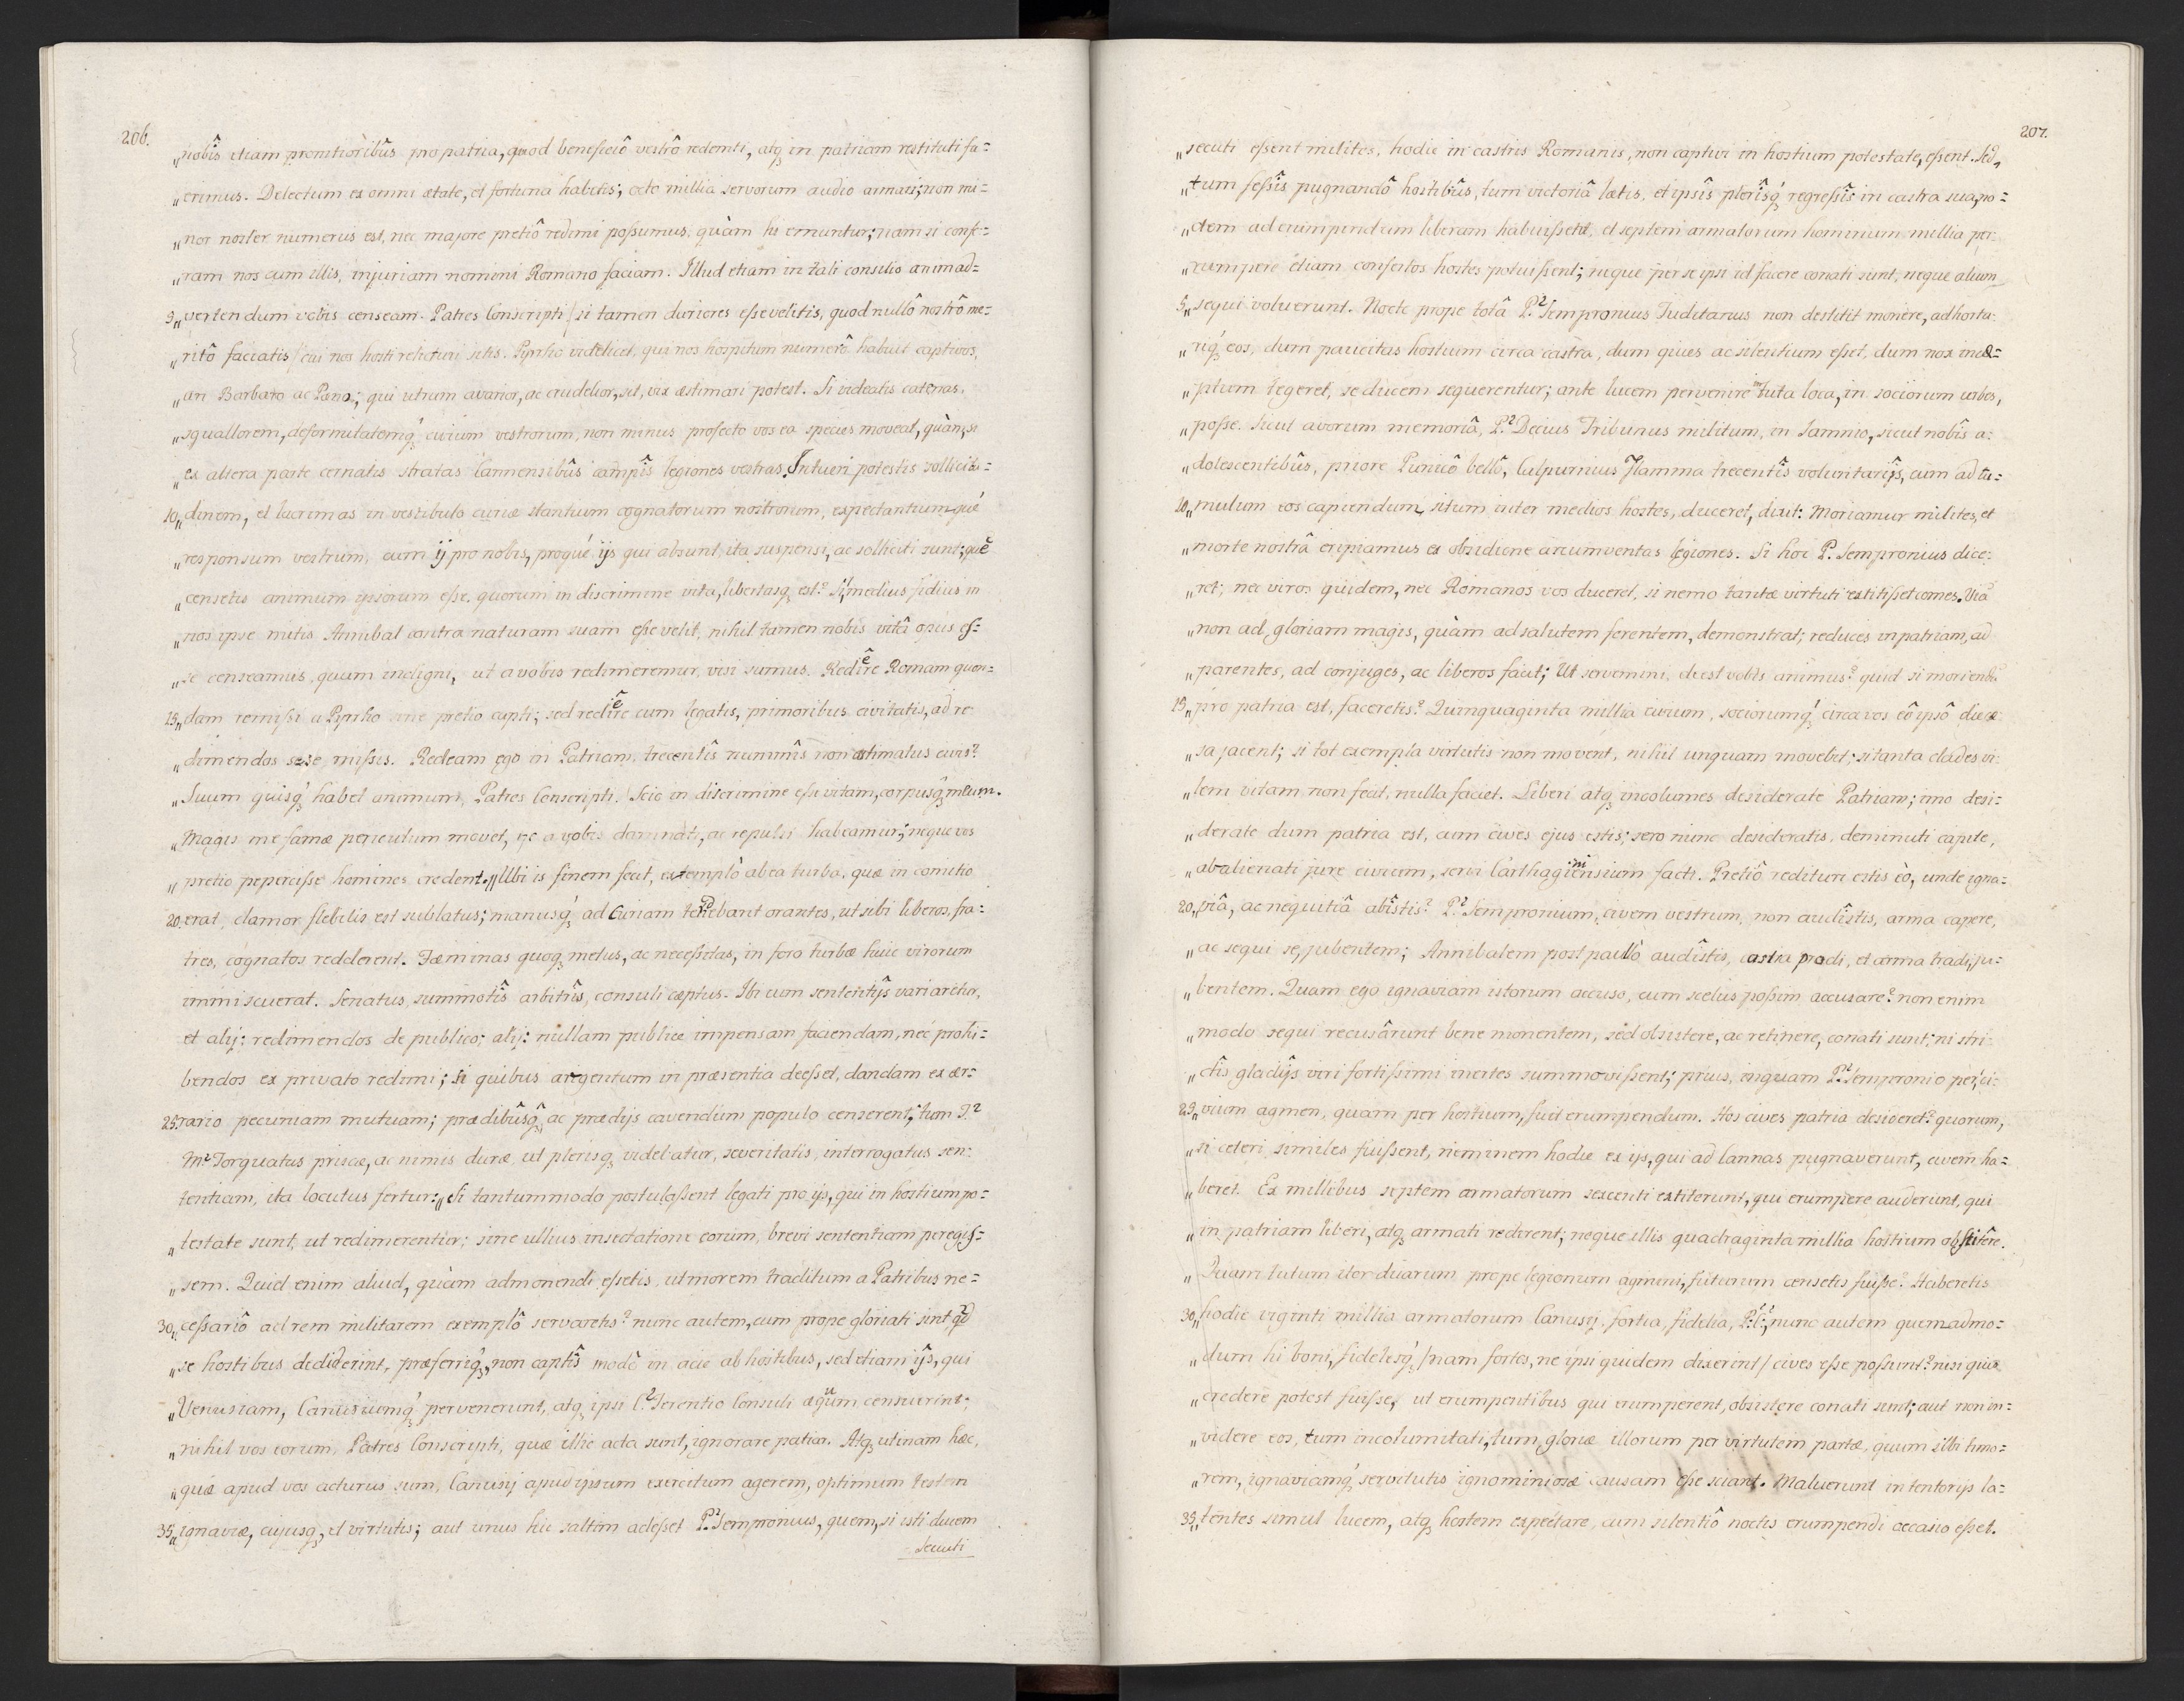 206.
„nobîs etiam promtiòribûs pro patria, quod beneficiô vestrô redemti, atq; in patriam restituti fu=
„erimus. Delectum ex omni ætate, et fortuna habetis; octo millia servorum audio armari; non mi=
„nor noster numerus est, nec majore pretiô redimi possumus, quàm hi emuntur; nam si confe=
„ram nos cum illis, injuriam nomini Romano faciam. Illud etiam in tali consilio animad=
5„vertendum vobis censeam. Patres Conscripti / si tamen duriores esse velitis, quod nullô nostrô me=
„ritô faciatis / cui nos hosti relicturi sitis. Pyrrho videlicet, qui nos hospitum numerô habuit captivos,
„an Barbaro ac Pœno; qui utrum avarior, ac crudelior, sit, vix æstimari potest. Si videatis catenas,
„squallorem, deformitatemq́; civium vestrorum, non minus profecto vos ea species moveat, quàm, si
„ex altera parte cernatis stratas Cannensibûs campîs legiones vestras. Intueri potestis sollicitu=
10„dinem, et lacrimas in vestibulo curiæ stantium cognatorum nostrorum, expectantiumqué
„responsum vestrum, cum ij pro nobis, proqué ijs qui absunt, ita suspensi, ac solliciti sunt; quẽ
„censetis animum ipsorum esse, quorum in discrimine vita, libertasq; est? Si, medius fidius in
„nos ipse mitis Annibal contra naturam suam esse velit, nihil tamen nobis vitâ opus es=
„se censeamus, quum indigni, ut a vobis redimeremur, visi sumus. Redire Romam quon=
15„dam remissi a Pyrrho sine pretio capti; sed redire cum legatis, primoribus civitatis, ad re
„dimendos sese, missis. Redeam ego in Patriam, trecentîs nummîs non æstimatus civis?
„Suum quisq́; habet animum, Patres Conscripti. Scio in discrimine esse vitam, corpusq́; meum.
„Magis me famæ periculum movet, ne a vobis damnati, ac repulsi habeamur; neque vos
„pretio pepercisse homines credent.„ Ubi is finem fecit, extemplò ab ea turba, quæ in comitio
20. erat, clamor flebilis est sublatus; manusq́; ad Curiam tendebant orantes, ut sibi liberos, fra=
tres, cognatos redderent. Fæminas quoq; metus, ac necessitas, in foro turbæ huic virorum
immiscuerat. Senatus, summotîs arbitrîs, consuli cæptus. Ibi cum sententijs variaretur,
et alij: redimendos de publico; alij: nullam publice impensam faciendam, nec prohi=
bendos ex privato redimi; si quibus argentum in præsentia deesset, dandam ex ær=
25. rario pecuniam mutuam; prædibûsq́; ac prædijs cavendum populo censerent; tum T.²
M.² Torquatus priscæ, ac nimis duræ, ut plerisq; videbatur, severitatis, interrogatus sen=
tentiam, ita locutus fertur: „Si tantummodo postulassent legati pro ijs, qui in hostium po=
„testate sunt, ut redimerentur; sine ullius insectatione eorum, brevi sententiam peregis=
„sem. Quid enim aliud, quàm admonendi essetis, ut morem traditum a Patribus ne=
30„cessariô ad rem militarem exemplô servaretis? nunc autem, cum prope gloriati sint qd
„se hostibus dediderint, præferriq́;, non captîs modò in acie ab hostibus, sed etiam ijs, qui
„Venusiam, Canusiumq́; pervenerunt, atq; ipsi C.² Terentio Consuli æquum censuerint;
„nihil vos eorum, Patres Conscripti, quæ illic acta sunt, ignorare patiar. Atq; utinam hæc,
„quæ apud vos acturus sum, Canusij apud ipsum exercitum agerem, optimum testem
35„ignaviæ, cujusq;, et virtutis; aut unus hic saltem adesset P.² Sempronius, quem, si isti ducem
Secuti
207.
„secuti essent milites, hodie in castris Romanis, non captivi in hostium potestate, essent. Sed,
„tum fessîs pugnandô hostibûs, tum victoriâ lætis, et ipsîs plerîsq́; regressîs in castra sua, no=
„ctem ad erumpendum liberam habuissent, et septem armatorum hominum millia per=
„rumpere etiam confertos hostes potuissent; neque per se ipsi id facere conati sunt, neque alium
5„sequi voluerunt. Nocte prope totâ P.² Sempronius Tuditanus non destitit monere, adhorta=
„riq́; eos, dum paucitas hostium circa castra, dum quies ac silentium esset, dum nox ince=
„ptum tegeret, se ducem sequerentur; ante lucem pervenire in tuta loca, in sociorum urbes,
„posse. Sicut avorum memoriâ, P.² Decius Tribunus militum, in Samnio, sicut nobîs a=
„dolescentibûs, priore Punicô bellô, Calpurnius Flamma trecentîs voluntarijs, cum ad tu=
10„mulum eos capiendum, situm inter medios hostes, duceret, dixit: Moriamur milites, et
„morte nostrâ eripiamus ex obsidione circumventas legiones. Si hoc P. Sempronius dice=
„ret; nec viros quidem, nec Romanos vos duceret, si nemo tantæ virtuti extitisset comes. Viã
„non ad gloriam magis, quàm ad salutem ferentem, demonstrat; reduces in patriam, ad
„parentes, ad conjuges, ac liberos facit; Ut servemini, deest vobis animus? quid si moriendũ
15„pro patria est, faceretis? Quinquaginta millia civium, sociorumq́; circa vos eô ipsô die cæ
„sa jacent; si tot exempla virtutis non movent, nihil unquam movebit; si tanta clades vi=
„lem vitam non fecit, nulla faciet. Liberi atq; incolumes desiderate Patriam; imo desi=
„derate dum patria est, cum cives ejus estis; sero nunc desideratis, deminuti capite,
„abalienati jure civium, servi Carthaginiensium facti. Pretiô redituri estis eò, unde igna=
20„viâ, ac nequitiâ abîstis? P.² Sempronium, civem vestrum, non audîstis, arma capere,
„ac segui se, jubentem; Annibalem post paullò audîstis, castra prodi, et arma tradi, ju=
„bentem. Quam ego ignaviam istorum accuso, cum scelus possim accusare? non enim
„modo sequi recusârunt bene monentem, sed obsistere, ac retinere, conati sunt; ni stri=
„ctîs gladijs viri fortissimi inertes summovissent; prius, inquam P.² Sempronio per, ci=
25„vium agmen, quàm per hostium, fuit erumpendum. Hos cives patria desideret? quorum,
„si ceteri similes fuissent, neminem hodie ex ijs, qui ad Cannas pugnaverunt, civem ha=
„beret. Ex millibus septem armatorum sexcenti extiterunt, qui erumpere auderent, qui
„in patriam liberi, atq; armati redirent; neque illis quadraginta millia hostium obstitêre.
„Quam tutum iter duarum prope legionum agmini, futurum censetis fuisse? Haberetis
30„hodie viginti millia armatorum Canusij, fortia, fidelia, P.² C.²; nunc autem quemadmo=
„dum hi boni, fidelesq́; / nam fortes, ne ipsi quidem dixerint / cives esse possunt? nisi quis
„credere potest fuisse, ut erumpentibus qui erumperent, obsistere conati sunt; aut non in=
„videre eos, tum incolumitati, tum gloriæ illorum per virtutem partæ, quum sibi timo=
„rem, ignaviamq́; servitutis ignominiosæ causam esse sciant. Maluerunt in tentorijs la=
35„tentes simul lucem, atq; hostem expectare, cum silentiô noctis erumpendi occasio esset.